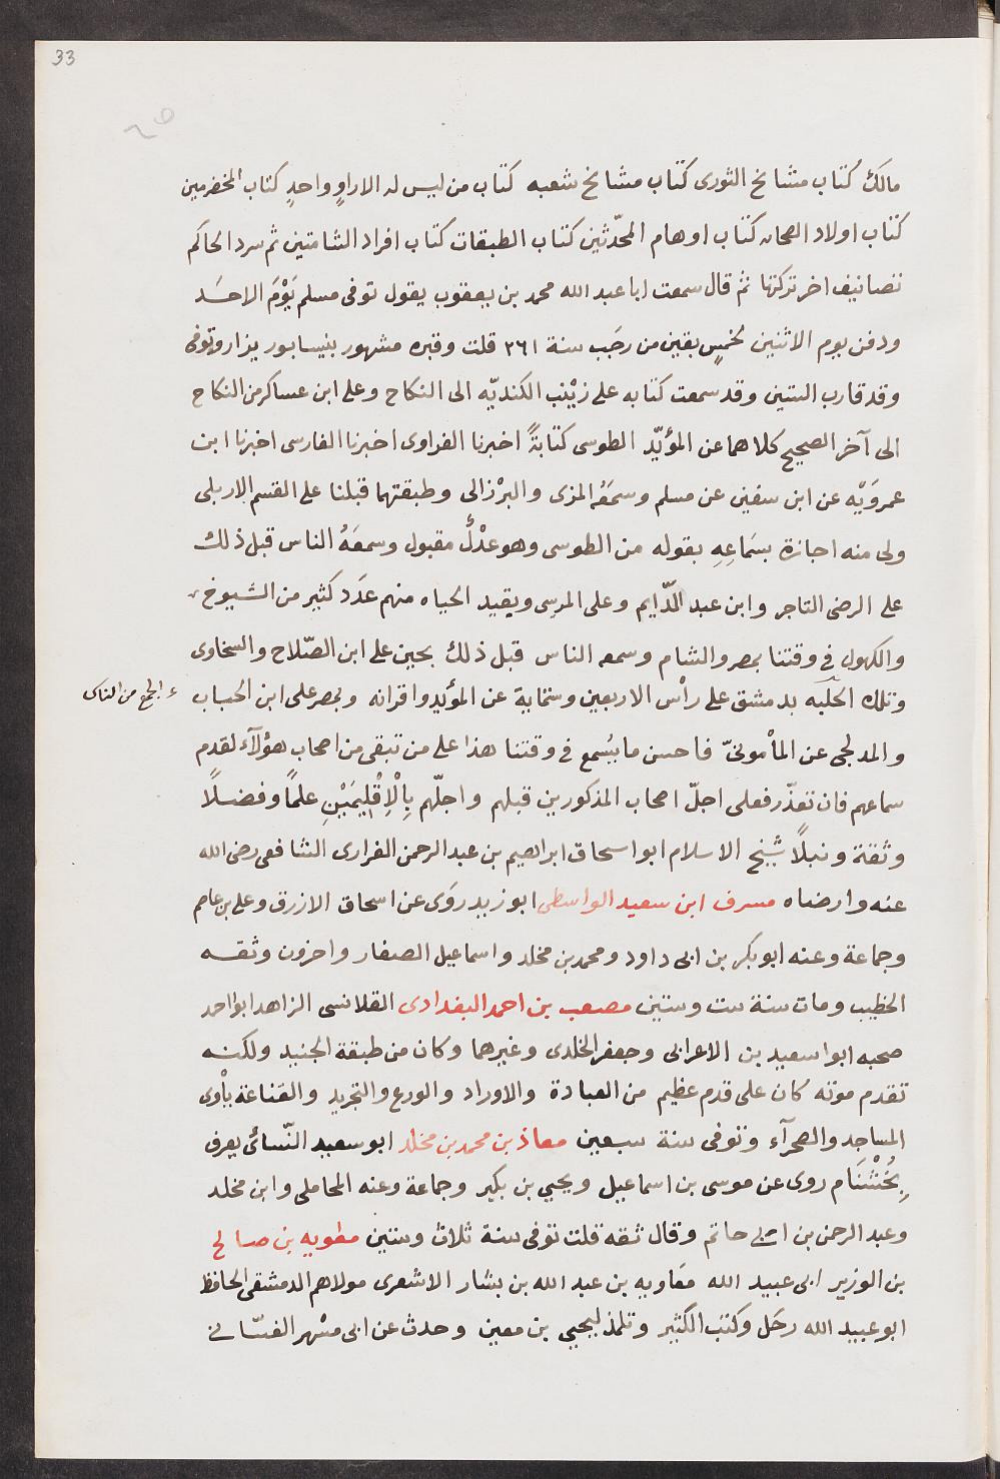 33
مالك كتاب مشايخ الثورى كتاب مشايخ شعبه كتاب من ليس له الا راوٍ واحدٍ كتاب المخضرمين
كتاب اولاد الصحابه كتاب اوهام المحدّثين كتاب الطبقات كتاب افراد الشامتين ثم سرد الحاكم
تصانيف اخر تركتها ثم قال سمعت ابا عبد الله محمد بن يعقوب يقول توفى مسلم يَوْمَ الاحَـد
ودفن يوم الاثنين لخمسٍ بقين من رجَب سنة ٢٦١ قلت وقبره مشهور بنيسابور يزار وتوفى
وقد قارب الستين وقد سمعت كتابه على زيْنب الكنديّه الى النكاح وعلى ابن عساكر من النكاح
الى آخر الصحيح كلاهما عن المؤيّد الطوسى كتابةً اخبرنا الفراوى اخبرنا الفارسى اخبرنا ابن
عمروَيْه عن ابن سفين عن مسلم وسمعَه المزى والبرْزالى وطبقتهما قبلنا على القسم الاربلى
ولى منه اجازة بسَماعِهِ بقوله من الطوسى وهو عدْلٌ مقبول وسمعَهُ الناس قبل ذلك
على الرضى التاجر وابن عبد الدّايم وعلى المرسى وبقيد الحياه منهم عَدَد كثير من الشيوخ
والكهول فى وقتنا بمصر والشام وسمعه الناس قبل ذلك بحين على ابن الصّلاح والسخاوى
وتلك الحلبه بدمشق على رأس الاربعين وستماية عن المؤيد واقرانه وبمصر على ابن الحباب
ء الجمع من الناس
والمدلجى عن المأمونىّ فاحسن ما يُسمع فى وقتنا هذا على من تبقى من اصحاب هؤلآء لقدم
سماعهم فان تعذّر فعلى اجلّ اصحاب المذكورين قبلهم واجلّهم بِالْاِقْلِيمَيْنِ علمًا وفضـلًا
وثقة ونبلًا شيخ الاسلام ابو اسحاق ابرهيم بن عبد الرحمن الفزارى الشافعى رضى الله
عنه وارضاه مسرف ابن سعيد الواسطى ابو زيد روَى عن اسحاق الازرق وعلى بن عاصم
وجماعة وعنه ابو بكر بن ابى داود ومحمد بن مخلد واسماعيل الصفار واخرون وثقـه
الخطيب ومات سنة ست وستين مصعب بن احمد البغدادى القلانسى الزاهد ابو احمد
صحبه ابو اسعيد بن الاعرابى وجعفر الخلدى وغيرهما وكان من طبقة الجنيد ولكنـه
تقدم موته كان على قدم عظيم من العبادة والاوراد والورع والتجريد والقناعة يأوى
المساجد والصحرآء وتوفى سنة سبعين معاذ بن محمد بن مخلد ابو سعيد النّسائى يعرف
بِخُشْنَام روى عن موسى بن اسماعيل ويحيى بن بكير وجماعة وعنه المحاملى وابن مخلد
وعبد الرحمن بن ابى حاتم وقال ثقه قلت توفى سنة ثلاث وستين مطويه بن صالح
بن الوزير ابى عبيد الله معَاويه بن عبد الله بن بشار الاشعرى مولاهم الدمشقى الحافظ
ابو عبيد الله رحَل وكتب الكثير وتلمذ ليحيى بن معين وحدث عن ابى مسْهر الغسّانى